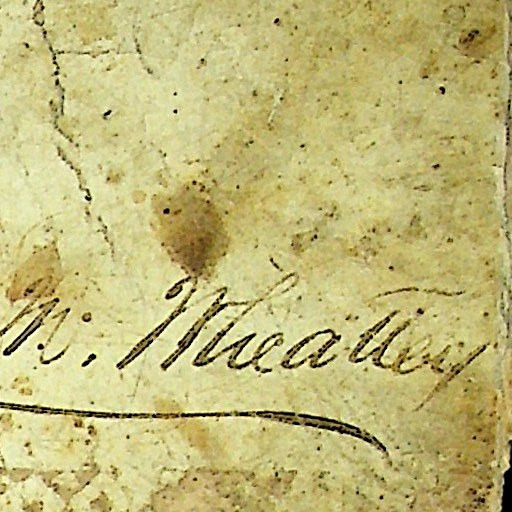 M. Wheatley